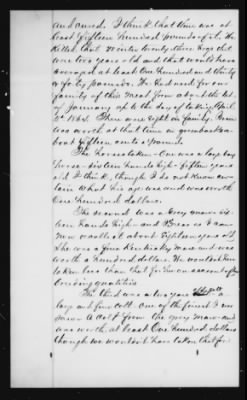 and cured. I think that there was at
least fifteen hundred pounds of it. He
killed that winter twenty three hogs that
were two years old and that would have
averaged at least one hundred and thirty
five pounds. He had used for our
family of this meat from about the 1st.
of January up to the day of taking April
2d 1864. There were eight in family. Bacon
was worth at that time in greenbacks a-
bout fifteen cents a pound.
The horses taken - One was a large bay
horse sixteen hands high - fifteen years
old I think, though I do not know cer-
tain what his age was and was worth
One hundred dollars.
The second was a Grey mare six-
teen hands high - and
now about eighteen years old
She was a fine Kentucky mare and was
worth a hundred dollars. He wouldn't have
taken less than that for her on account of her
breeding qualities.
The third was a two year old colt a
bay mare colt. One of the finest I ever
saw - A colt from the grey mare - and
was worth at least One hundred dollars
though we wouldn't have taken that for